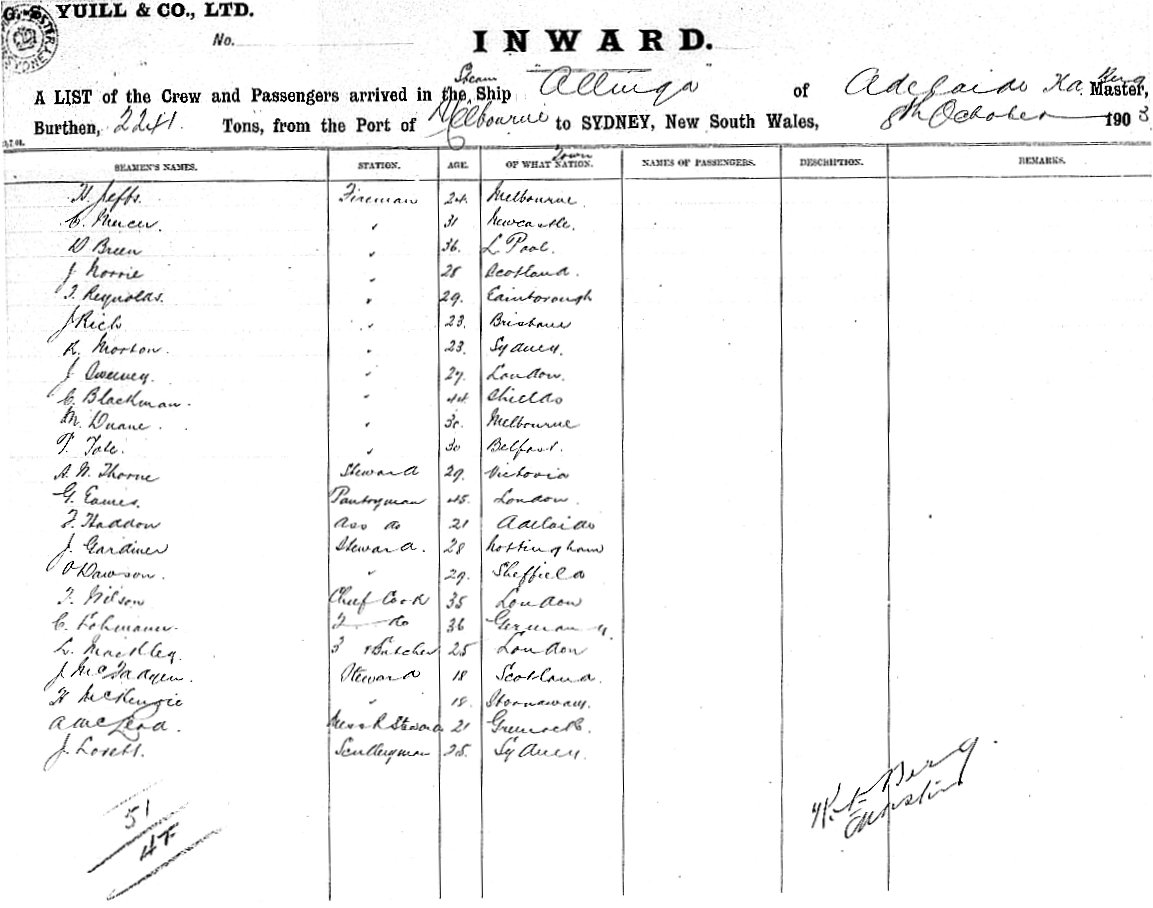 G. S. YUILL & CO., LTD.
No.
INWARD.
A LIST of the Crew and Passengers arrived in the Steam Ship Allinga of Adelaide Berg Master,
Burthen, 2241 Tons, from the Port of Melbourne to SYDNEY, New South Wales, 8th October 1903
SEAMEN'S NAMES. STATION. AGE. OF WHAT NATION. Town NAMES OF PASSENGERS. DESCRIPTION. REMARKS.
H. Jeffs. Fireman 24. Melbourne.
C. Mercer. " 31 Newcastle.
D Breen " 36. L Pool.
J Norrie " 28 Scotland.
T. Reynolds. " 29.
J Rich " 23. Brisbane
R. Morton. " 23. Sydney.
J Sweeney. " 27. London.
C. Blackman. " 44 Shields
M. Duane. " 30. Melbourne
" 30 Belfast.
A. W. Thorne Steward 29. Victoria
G. Eames. Pantryman 45. London.
F. Haddon Ass do 21 Adelaide
J. Gardiner Steward. 28 Nottingham
O Dawson. " 29. Sheffield
T. Wilson Chief Cook 35 London
C. Lohmann. 2 do 36 Germany.
L. 3 & Butcher 25 London
J McFadyen. Steward 18 Scotland.
H McKenzie " 18. Stornaway.
A McLeod. Mess R Steward 21 Greenock.
J. Lovett. Sculleryman 25. Sydney
51
47
Berg